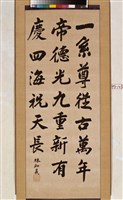 一系尊從古萬年
帝德光九重新有
慶四海祝天長